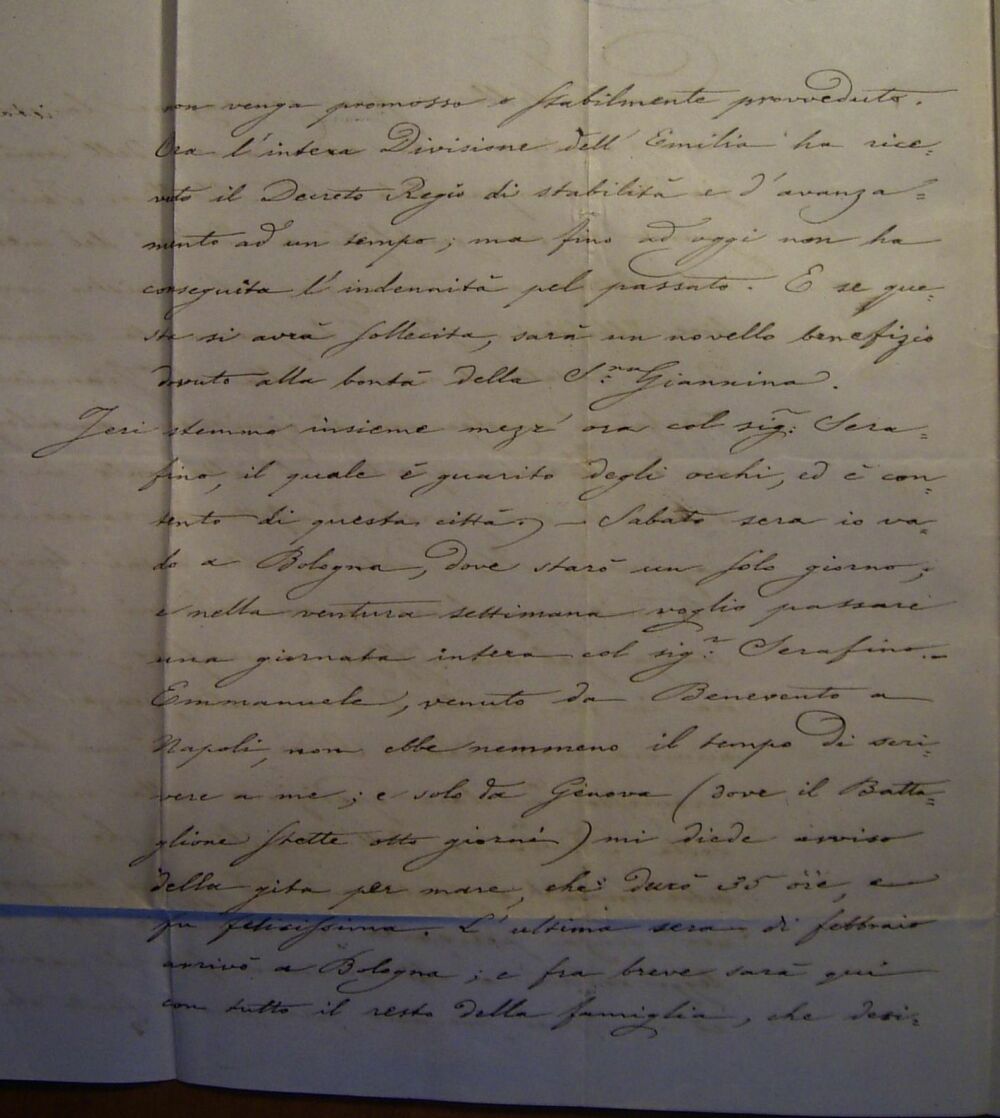 non venga promosso e stabilmente provveduto.
Ora l'intera Divisione dell'Emilia ha rice=
vuto il Decreto Regio di stabilità e d'avanza=
mento ad un tempo; ma fino ad oggi non ha
conseguita l'indennità pel passato. E se que=
sta si avrà sollecita, sarà un novello benefizio
dovuto alla bontà della S.ra Giannina.
Jeri stemmo insieme mezz'ora col sig.r Sera=
fino, il quale è guarito degli occhi, ed è con=
tento di questa città. – Sabato sera io va=
do a Bologna, dove starò un solo giorno;
e nella ventura settimana voglio passare
una giornata intera col sig.r Serafino. –
Emmanuele, venuto da Benevento a
Napoli, non ebbe nemmeno il tempo di scri=
vere a me; e solo da Genova (dove il Batta=
glione stette otto giorni) mi diede avviso
della gita per mare, che durò 35 ore, e
fu felicissima. L'ultima sera di febbraio
arrivò a Bologna; e fra breve sarà qui
con tutto il resto della famiglia, che desi=